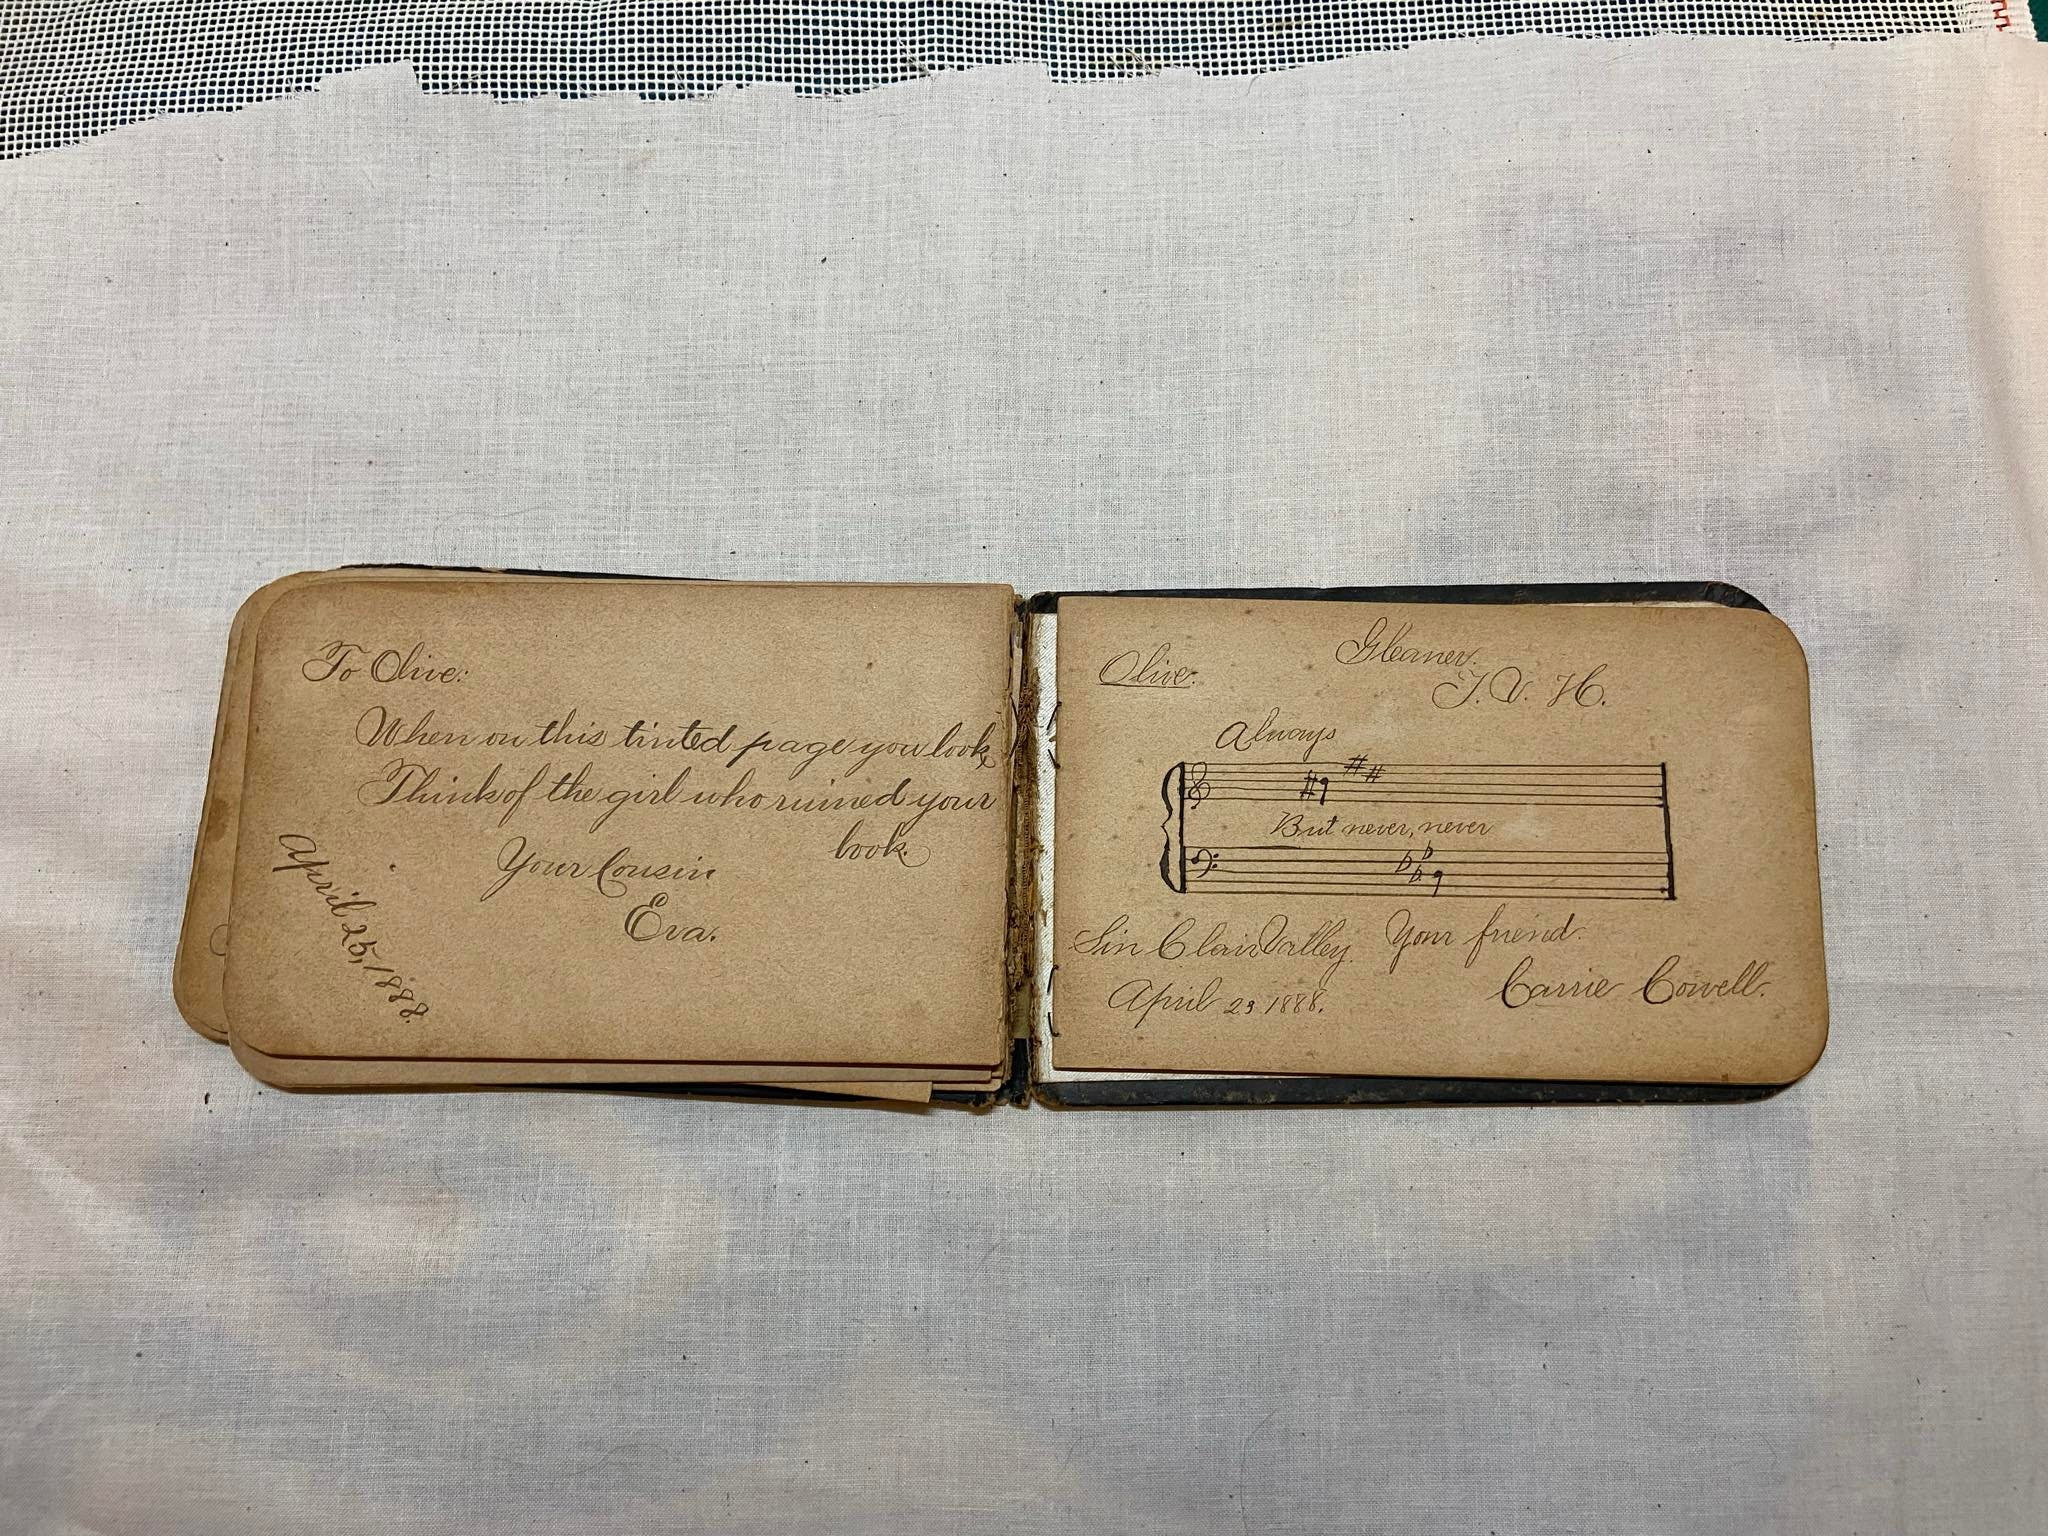 To Olive:
When on this tinted page you look,
Think of the girl who ruined your
book.
Your Cousin
Eva.
April 25, 1888.
Gleaner.
Olive.
I. V. H.
Always
But never, never
Sin Clair Valley. Your friend.
April 23 1888. Carrie Cowell.